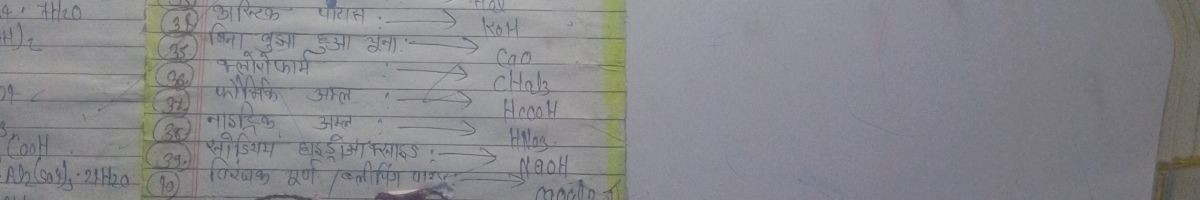 4. 7H2O
34 कास्टिक पोटास : → KOH
H)2
35. बिना बुझा हुआ चूना :- → CaO
36. क्लोरोफार्म : → CHCl3
37. फौर्मिक अम्ल : → HCOOH
38. नाइट्रिक अम्ल : → HNO3
COOH
39. सोडियम हाइड्रोआक्साइड : → NaOH
24H2O
40 विरंजक चूर्ण / ब्लीचिंग →